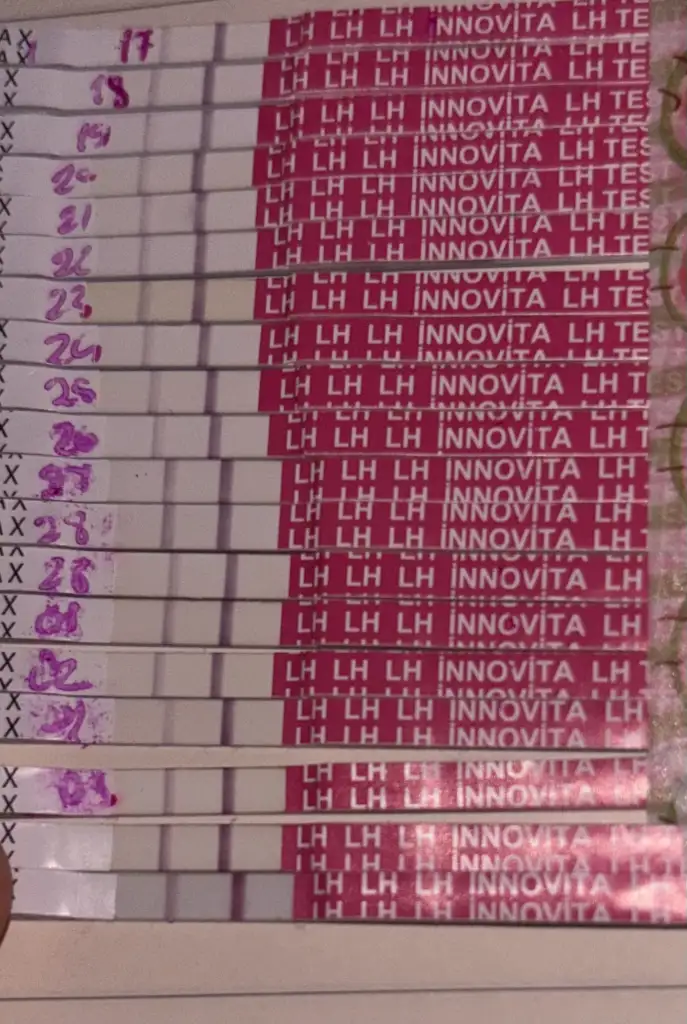 A X 17 LH LH LH İNNOVİTA LH TE
X 18 LH LH LH İNNOVİTA LH TE
X 19 LH LH LH İNNOVİTA LH TES
20 LH LH LH İNNOVİTA LH TES
X 21 LH LH LH İNNOVİTA LH TES
X LH LH LH İNNOVİTA LH TE
23 LH LH LH İNNOVİTA LH TE
X 24 LH LH LH İNNOVİTA LH TE
25 LH LH LH İNNOVİTA LH T
X 26 LH LH LH İNNOVİTA LH T
X LH LH LH İNNOVİTA LH
X 28 LH LH LH İNNOVİTA LH
X LH LH LH İNNOVİTA LH
X LH LH LH İNNOVİTA LH
X 02 LH LH LH İNNOVİTA LH
X LH LH LH İNNOVİTA LH
X LH LH LH İNNOVİTA
X LH LH LH İNNOVİTA
LH LH LH İNNOVİTA